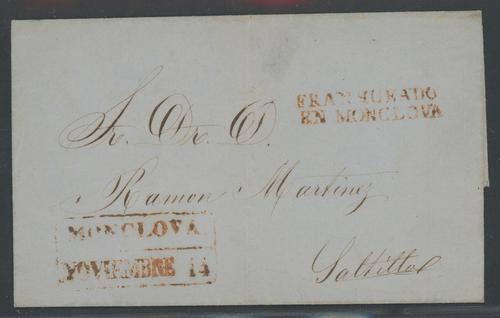 FRANQUEADO
EN MONCLOVA
Sr. Dr. D.
Ramon Martinez
MONCLOVA
NOVIEMBRE 14
Saltillo